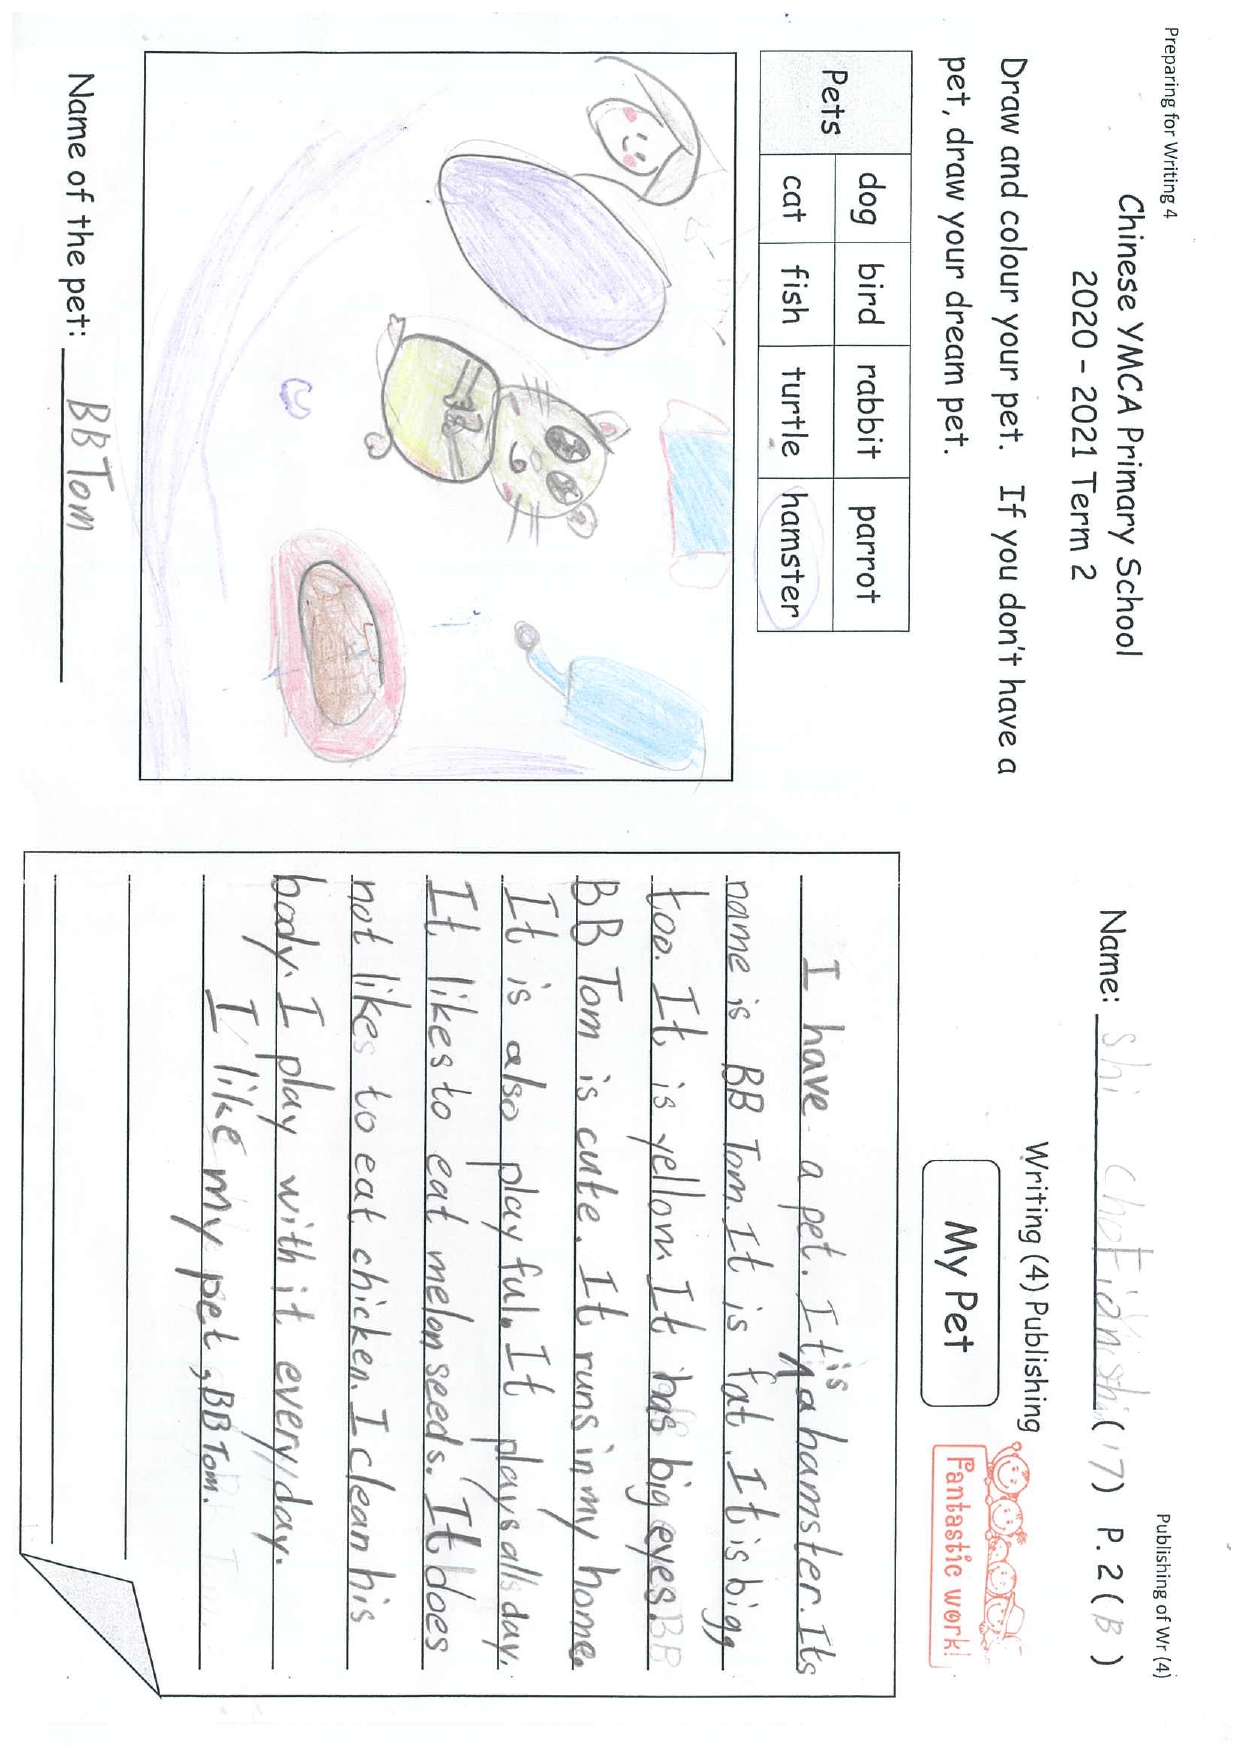 Preparing for Writing 4
Chinese YMCA Primary School
2020 - 2021 Term 2
Draw and colour your pet. If you don't have a
pet, draw your dream pet.
Pets
dog bird rabbit parrot
cat fish turtle hamster
Name of the pet: BB Tom
Publishing of Wr (4)
Name: shi (17) P. 2 ( B )
Writing (4) Publishing
My Pet
Fantastic work!
I have a pet. It is a hamster. Its
name is BB Tom. It is fat. It is big
too. It is yellow. It has big eyes. BB
BB Tom is cute. It runs in my home.
It is also playful. It plays all day.
It likes to eat melon seeds. It does
not likes to eat chicken. I clean his
body. I play with it every day.
I like my pet, BB Tom.